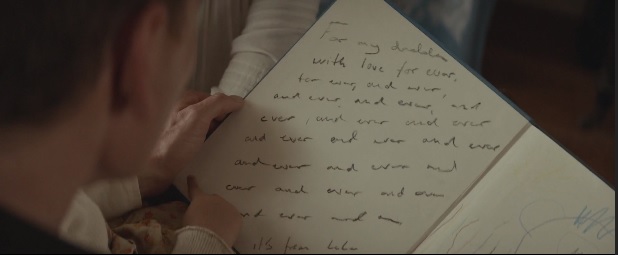 For my
with love for ever,
for ever, and ever,
and ever, and ever, and
ever, and ever and ever
and ever and ever and ever
and ever and ever and
ever and ever and ever
and ever and
from